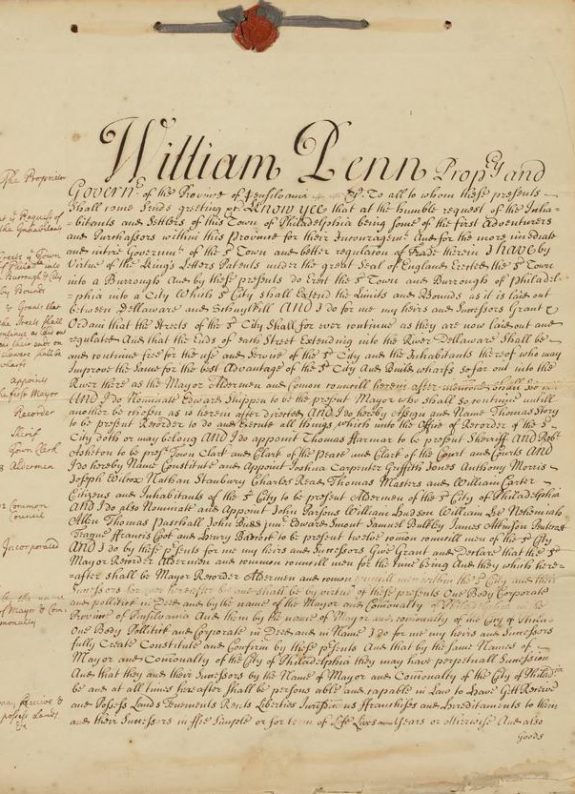 William Penn Propry and
Governr of the Province of Pensilvania To all to whom these presents
Shall come Sends greeting Know yee that at the humble request of the Inha-
bitants and Settlers of this Town of Philadelphia being some of the first Adventurers
and Purchassors within this Province for their Incouragemt And for the more imediate
and intire Governmt of the sd Town and better regulation of Trade therein I have by
Virtue of the Kings Letters Patents under the great Seal of England Erected the sd Town
into a Burrough And by these presents do Erect the sd Town and Burrough of Philadel-
phia into a City Which sd City shall Extend the Limits and Bounds as it is laid out
between Dellaware and Skuylkill AND I do for me my heirs and Successors Grant &
Ordain that the Streets of the sd City Shall for ever continue as they are now laid out and
regulated And that the Ends of each Street Extending into the River Dellaware Shall be
and continue free for the use and Servce of the sd City and the Inhabitants thereof who may
Improve the Same for the best Advantage of the sd City And Build wharfs so far out into the
River there as the Mayor Aldermen and Comon councill herein after mentioned Shall See
AND I do Nominate Edward Shippen to be the present Mayor who shall so continue untill
another be chosen as is herein after directed AND I do hereby Assign and Name Thomas Story
to be present Recorder to do and Execute all things which unto the Office of Recorder of the sd
City doth or may belong AND I do appoint Thomas Farmar to be present Sheriff AND Robt
Asheton to be prest Town Clark and Clark of the Peace and Clark of the Court and Courts AND
I do hereby Name Constitute and Appoint Joshua Carpenter Griffith Jones Anthony Morris
Joseph Wilcox Nathan Stanbury Charles Read Thomas Masters and William Carter
Citizens and Inhabitants of the sd City to be present Aldermen of the sd City of Philadelphia
AND I do also Nominate and Appoint John Parsons William Hudson William Lee Nehemiah
Allen Thomas Paschall John Budd junr Edward Smout Samuel Bulkley James Atkinson Pentecost
Teague Francis Cook and Henry Badcock to be present twelve comon councill men of the sd City
AND I do by these psents for me my heirs and Successors Give Grant and Declare that the sd
Mayor Recorder Aldermen and common councill men for the time being And they which here-
after shall be Mayor Recorder Aldermen and comon councill men within the sd City and their
Successors for ever hereafter be and shall be by virtue of these presents One Body Corporate
and pollitick in Deed and by the name of the Mayor and Comonalty of Philadelphia in the
Province of Pensilvania And them by the name of Mayor and comonalty of the City of Philad
One Body Pollitick and Corporate in Deed and in Name I do for me my heirs and Successors
fully Create Constitute and Confirm by these psents And that by the same Names of
Mayor and Comonalty of the City of Philadelphia they may have perpetuall Succession
And that they and their Successors by the Name of Mayor and Comonalty of the City of Philadia
be and at all times hereafter shall be persons able and capable in Law to Have Gett Receive
and Possess Lands Tenements Rents Liberties Jurisdicons ffranchises and Hereditaments to them
and their Successors in ffee Simple or for term of Life Lives and Years or otherwise And also
Goods
The Proprieter
Request of
the Inhabitants
Erects ye Town
of Philada into
a Borough & City
by Bounds
& Grants that
the Streets Shall
continue as laid out
appoints
Mayor
Recorder
Sherif
Town Clerk
8 Aldermen
Common
Council
Incorporated
by the name
of Mayor & Com-
monalty
may Receive &
possess Lands
&c